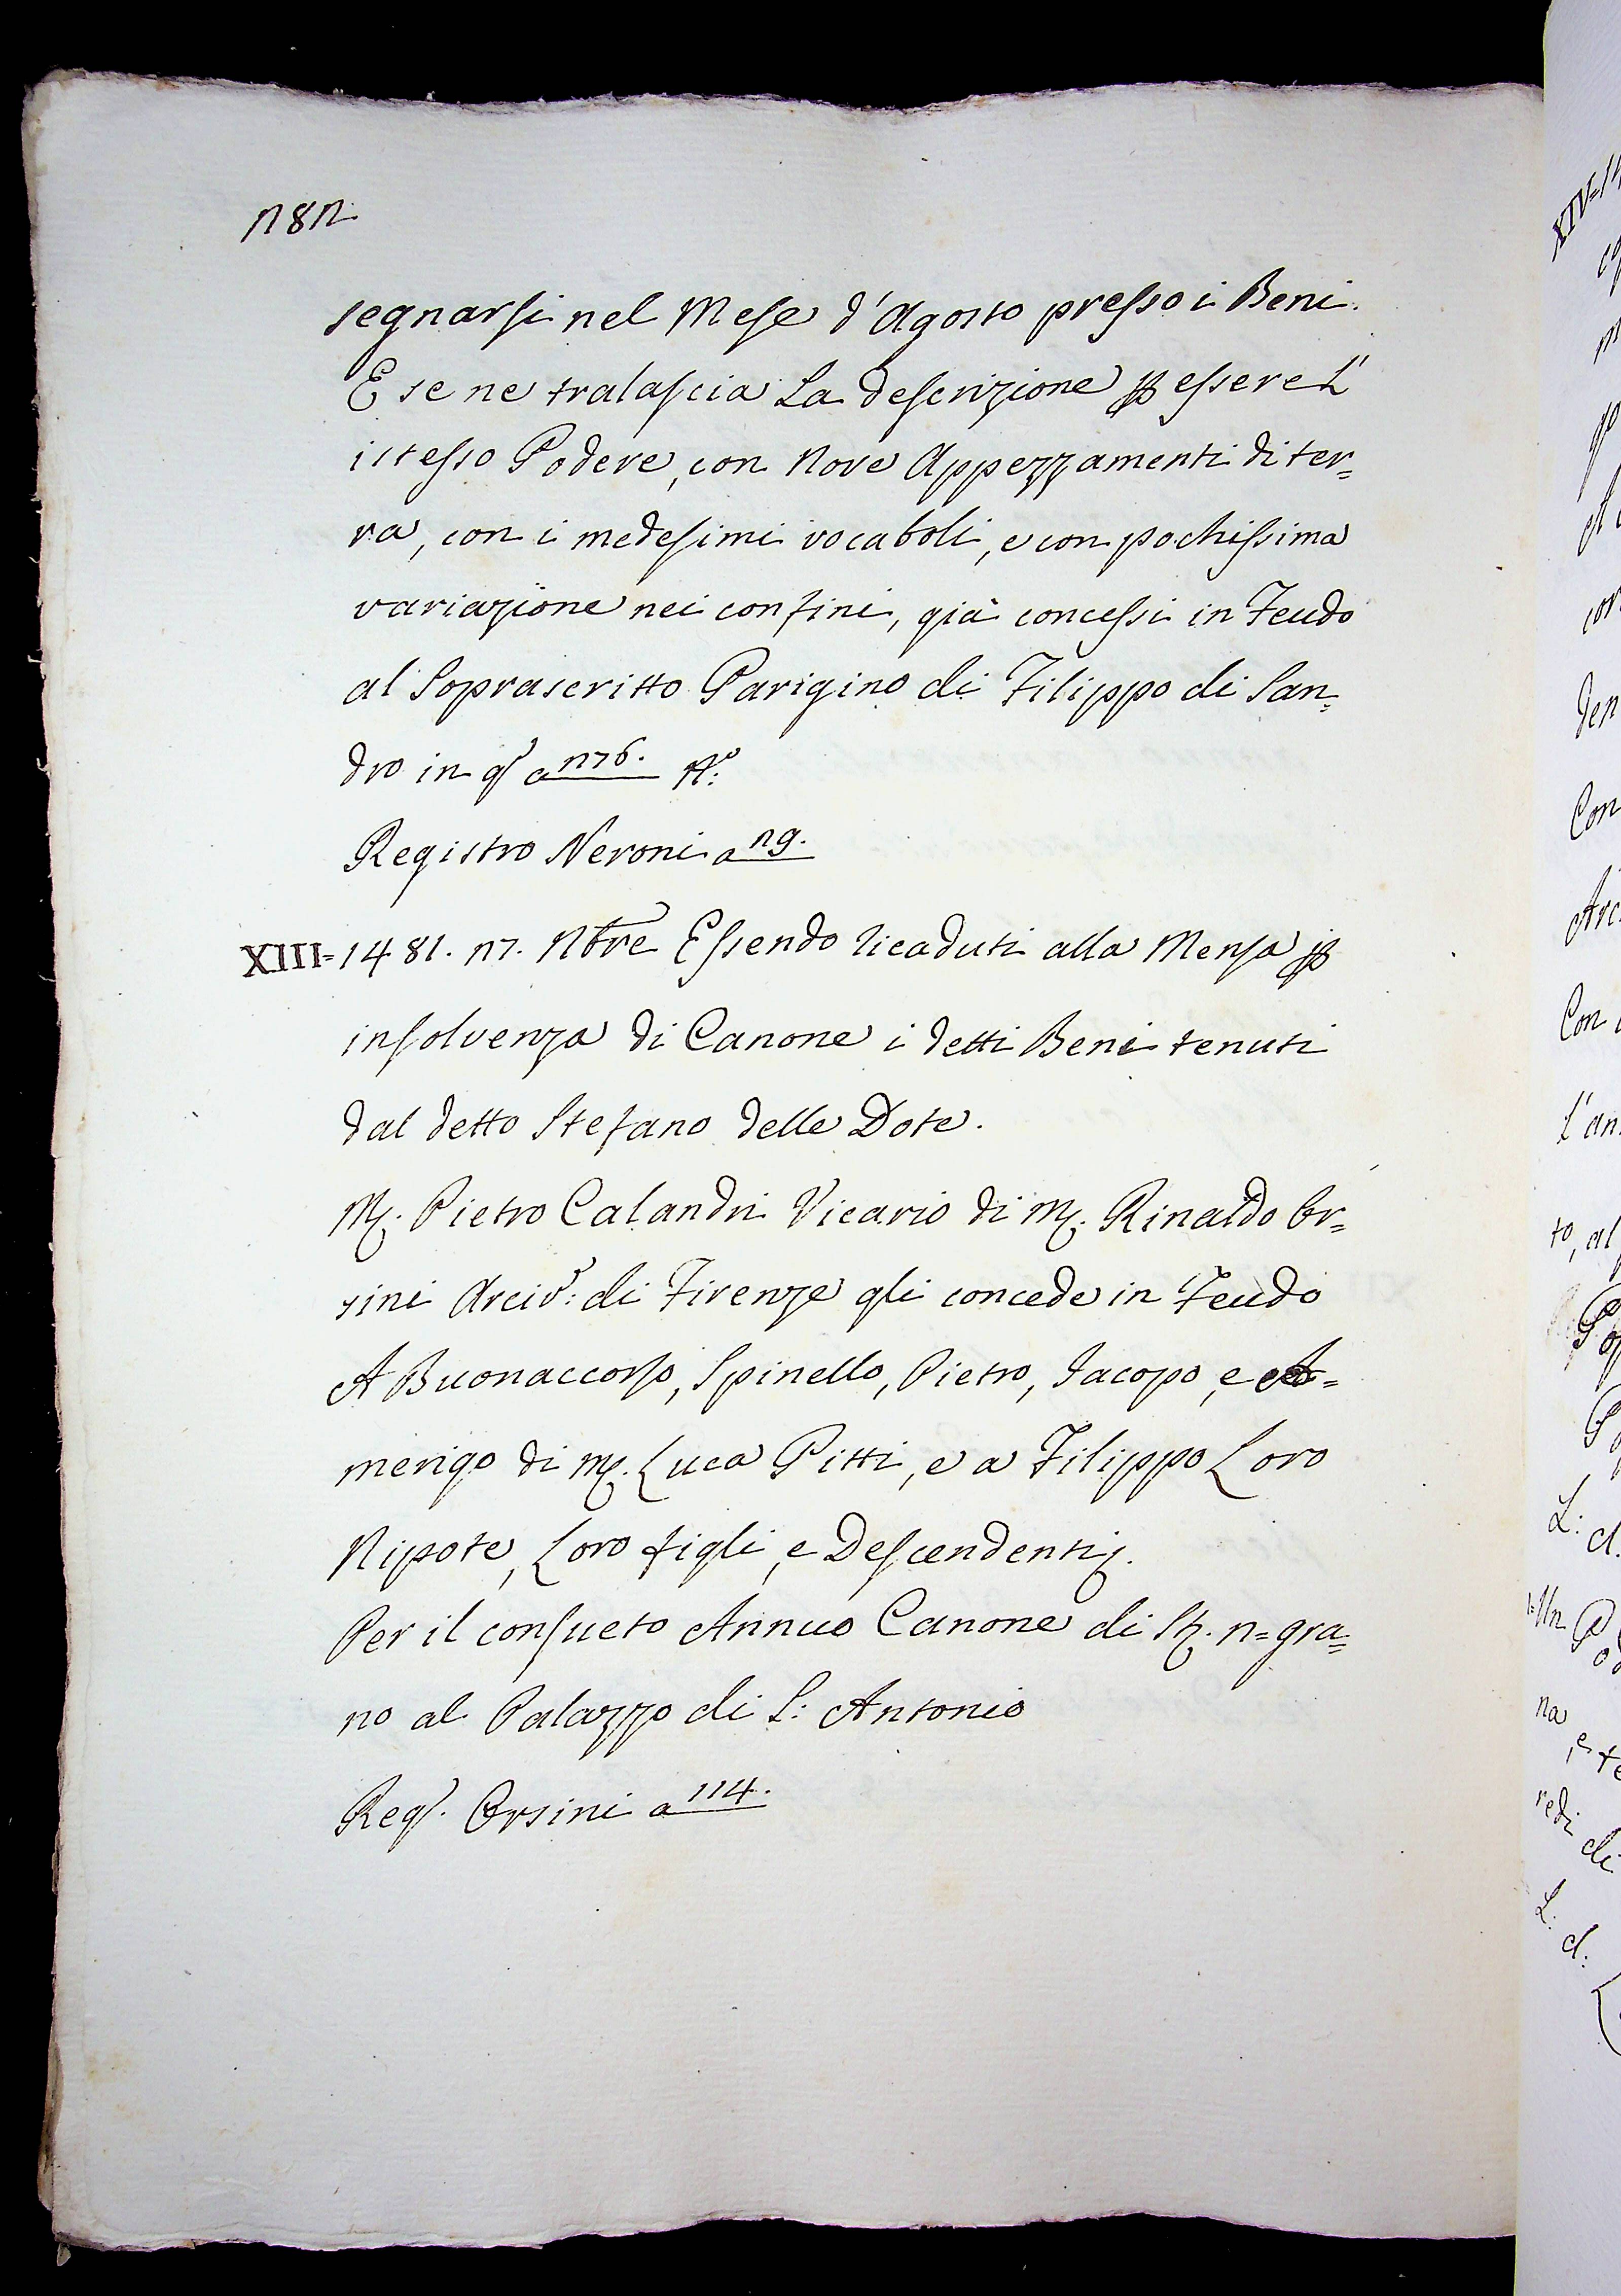 282
segnarsi nel Mese d'Agosto presso i Beni.
E se ne tralascia La descrizione ꝑ essere L'
istesso Podere, con Nove Appezzamenti di ter=
ra, con i medesimi vocaboli, e con pochissima
variazione nei confini, già concessi in Feudo
al Soprascritto Parigino di Filippo di San=
dro in q.º a 276.
Registro Neroni a 29.
XIII=1481. 27. Nbre Essendo ricaduti alla Mensa ꝑ
insolvenza di Canone i detti Beni tenuti
dal detto Stefano delle Dote.
M. Pietro Calandri Vicario di M. Rinaldo Or=
sini Arciv.º: di Firenze gli concede in Feudo
A Buonaccorso, Spinello, Pietro, Jacopo, e A=
merigo di M. Luca Pitti, e a Filippo Loro
Nipote, Loro figli, e Descendenti.
Per il consueto Annuo Canone di St. 2= gra=
no al Palazzo di S: Antonio
Reg.º Orsini a 114.